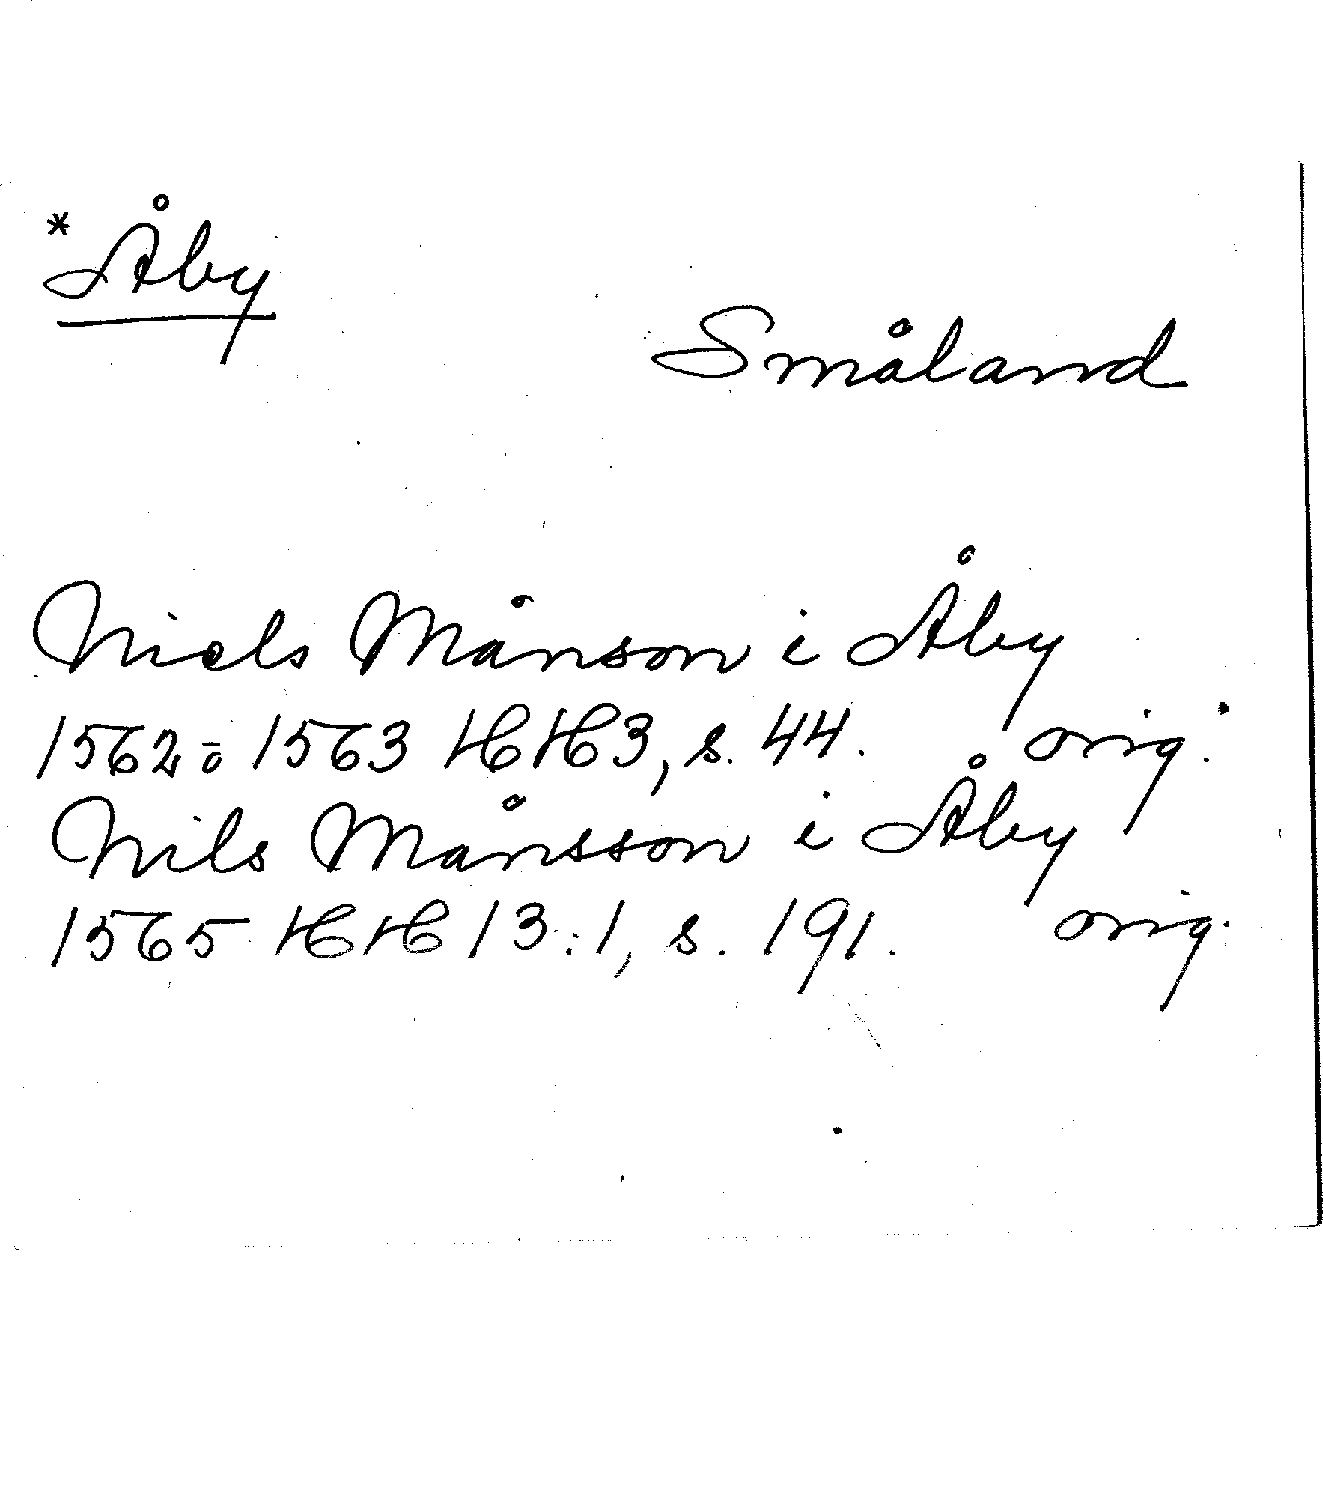 *Åby
Småland
Niels Månson i Åby
1562 ō 1563 HH3, s. 44. orig.
Nils Månsson i Åby
1565 HH 13:1, s. 191. orig.